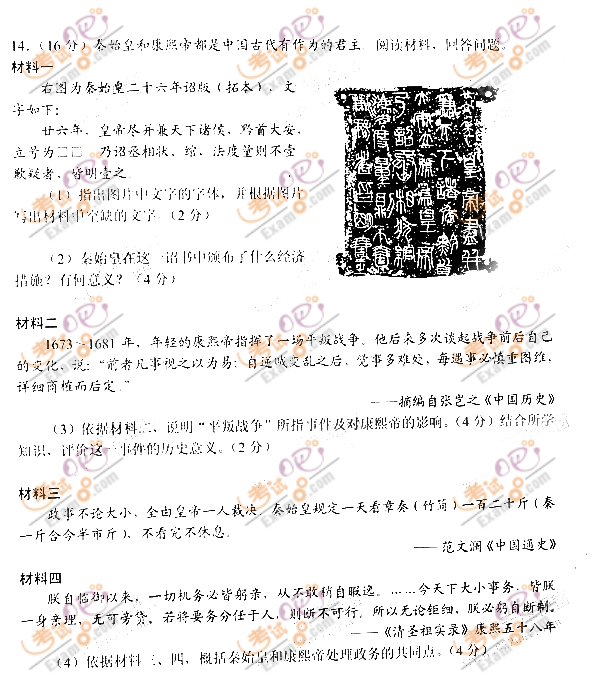 14.（16 分）秦始皇和康熙帝都是中国古代有作为的君主。阅读材料，回答问题。
材料一
右图为秦始皇二十六年诏版（拓本），文
字如下：
廿六年，皇帝尽并兼天下诸侯，黔首大安，
立号为□□，乃诏丞相状、绾，法度量则不壹
歉疑者，皆明壹之。
（1）指出图片中文字的字体，并根据图片
写出材料中空缺的文字。（2 分）
（2）秦始皇在这一诏书中颁布了什么经济
措施？有何意义？（4 分）
材料二
1673～1681 年，年轻的康熙帝指挥了一场平叛战争。他后来多次谈起战争前后自己
的变化，说：“前者凡事视之以为易；自逆贼变乱之后，觉事多难处，每遇事必慎重图维，
详细商榷而后定。”
——摘编自张岂之《中国历史》
（3）依据材料二，说明“平叛战争”所指事件及对康熙帝的影响。（4 分）结合所学
知识，评价这一事件的历史意义。（2 分）
材料三
政事不论大小，全由皇帝一人裁决。秦始皇规定一天看章奏（竹简）一百二十斤（秦
一斤合今半市斤），不看完不休息。
——范文澜《中国通史》
材料四
朕自临御以来，一切机务必皆躬亲，从不敢稍自暇逸。……今天下大小事务，皆朕
一身亲理，无可旁贷。若将要务分任于人，则断不可行。所以无论钜细，朕必躬自断制。
——《清圣祖实录》康熙五十八年
（4）依据材料三、四，概括秦始皇和康熙帝处理政务的共同点。（4 分）